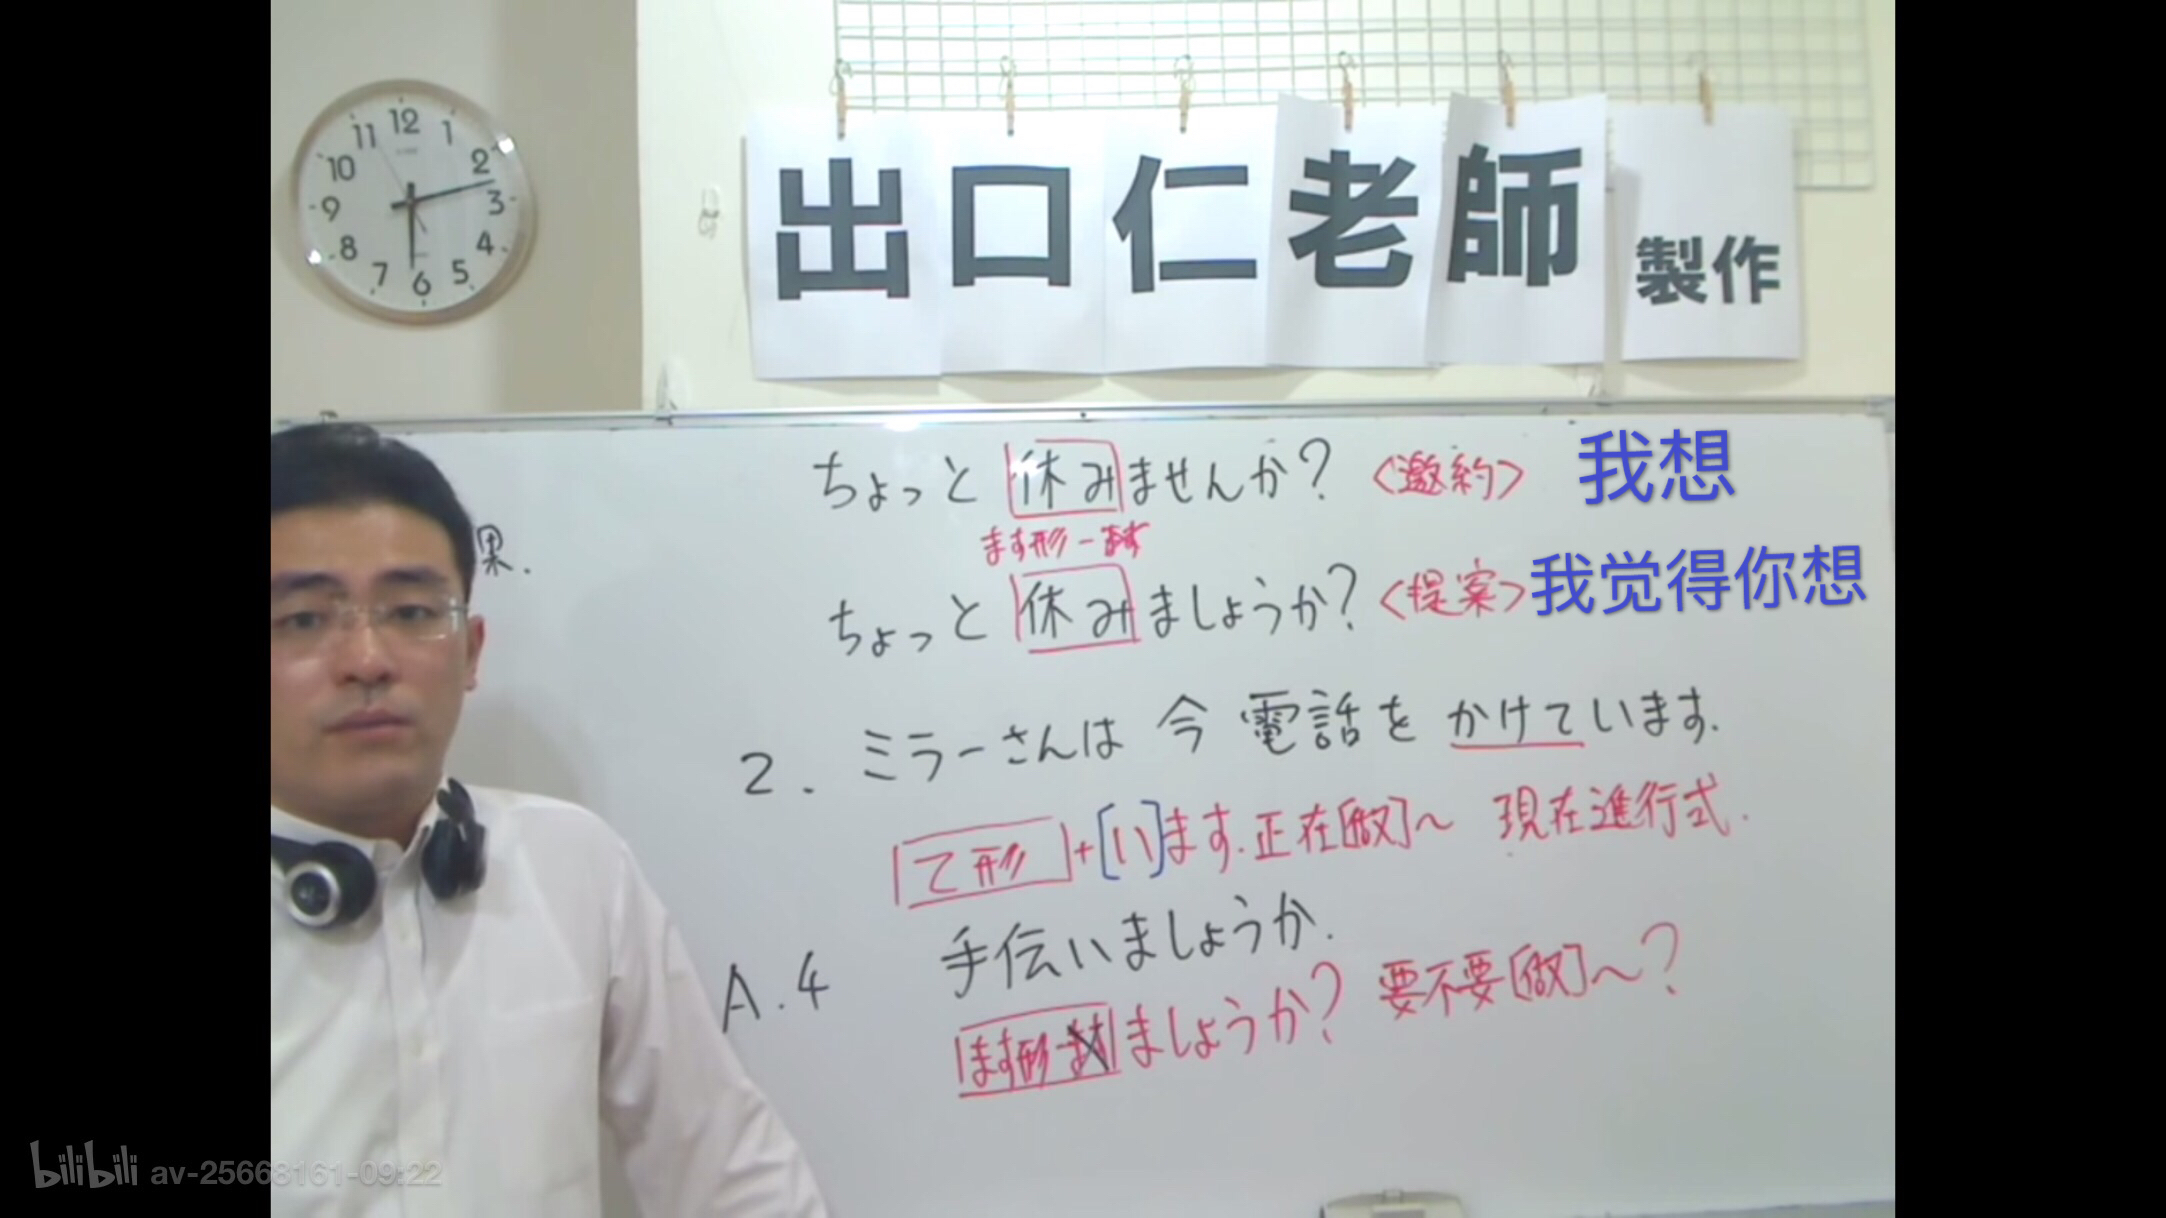 12
11
1
10
2
9
3
8
4
7
5
6
出口仁老師 製作
ちょっと 休みませんか？ <邀約> 我想
ます形-ます
果.
ちょっと 休みましょうか？ <提案> 我觉得你想
2. ミラーさんは 今 電話を かけています.
て形+[い]ます.正在[做]～ 現在進行式.
A.4 手伝いましょうか.
ます形-ます ましょうか？ 要不要[做]～？
bilibili av-25668161-09:22